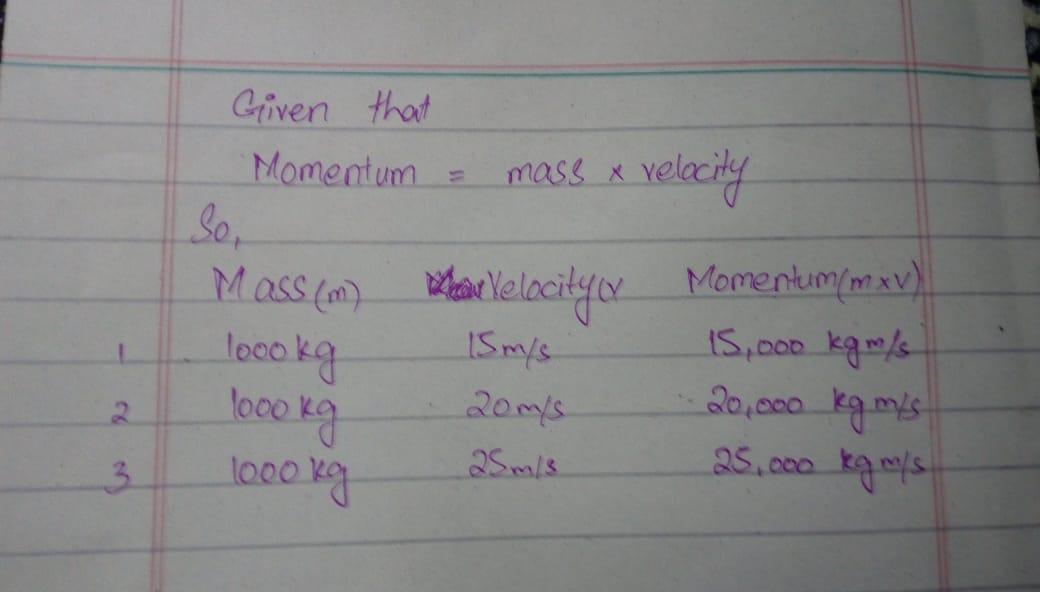 Given that
Momentum = mass x velocity
So,
Mass (m) Velocity (v Momentum (m x v)
1 1000 kg 15 m/s 15,000 kg m/s
2 1000 kg 20 m/s 20,000 kg m/s
3 1000 kg 25 m/s 25,000 kg m/s